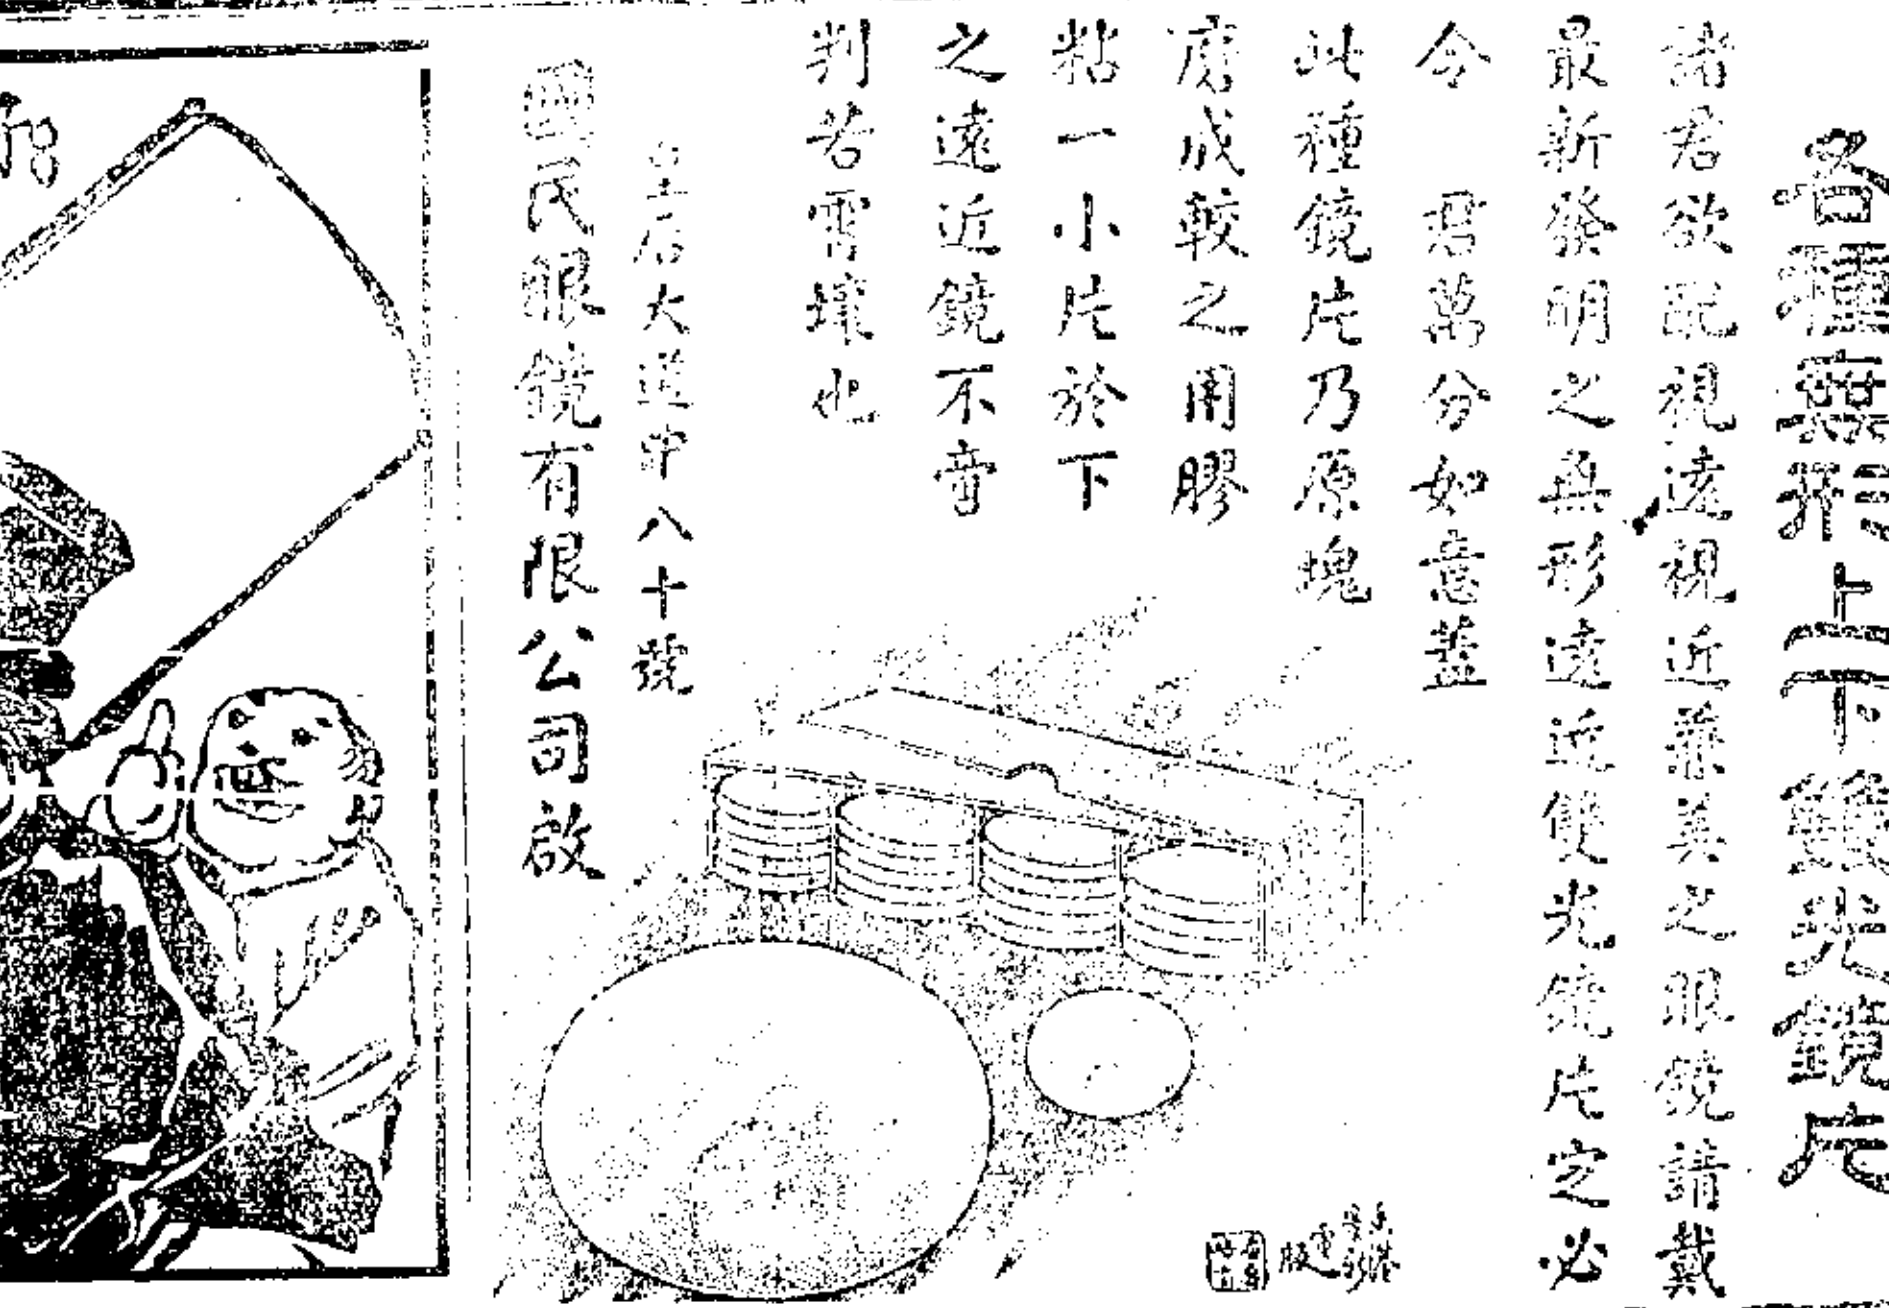 各種無形上下雙光鏡片
諸君欲配視遠視近兼美之眼鏡請戴
最新發明之無形遠近雙光鏡片定必
令 君萬分如意蓋
此種鏡片乃原塊
磨成較之用膠
粘一小片於下
之遠近鏡不啻
判若霄壤也
皇后大道中八十號
國民眼鏡有限公司啟